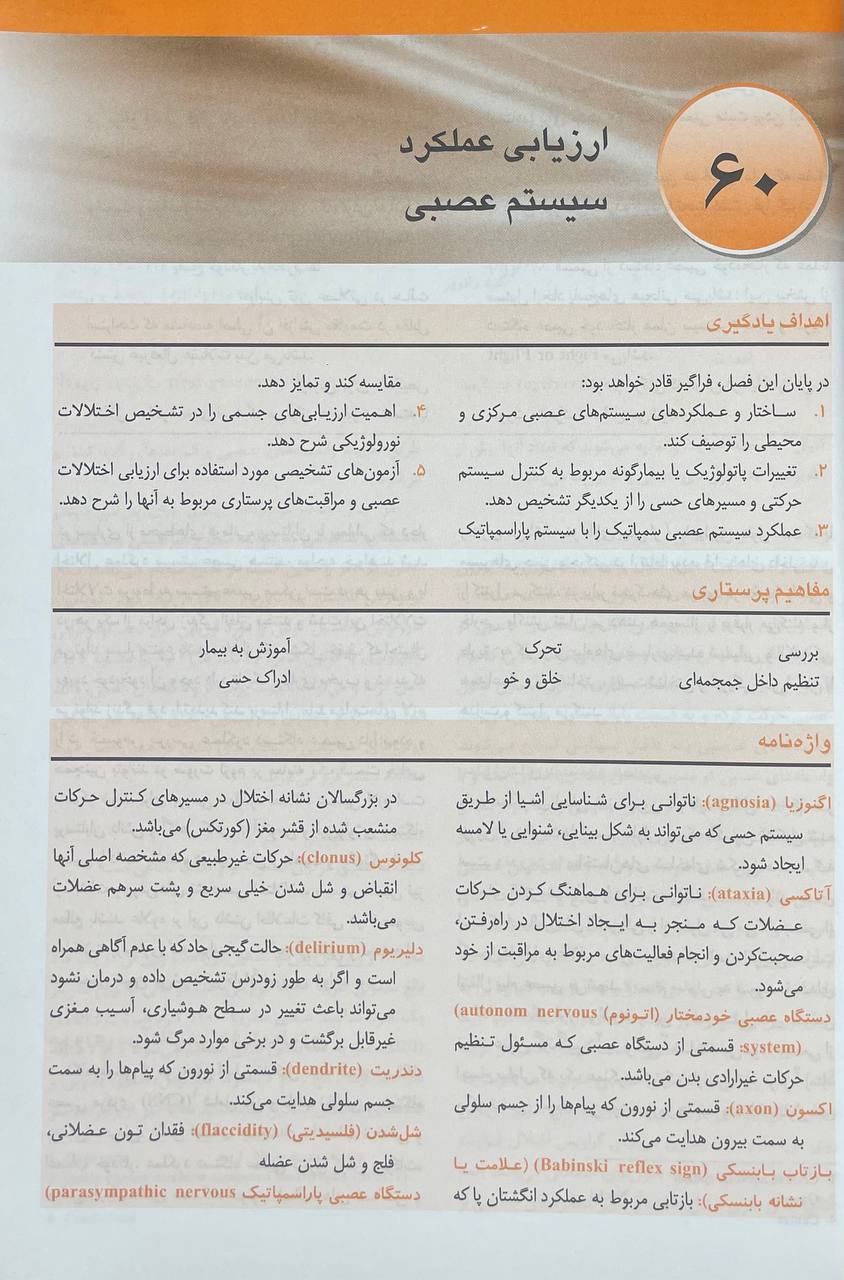 ۶۰
ارزیابی عملکرد
سیستم عصبی
اهداف یادگیری
در پایان این فصل، فراگیر قادر خواهد بود:
۱. ساختار و عملکردهای سیستم‌های عصبی مرکزی و
محیطی را توصیف کند.
۲. تغییرات پاتولوژیک یا بیمارگونه مربوط به کنترل سیستم
حرکتی و مسیرهای حسی را از یکدیگر تشخیص دهد.
۳. عملکرد سیستم عصبی سمپاتیک را با سیستم پاراسمپاتیک
مقایسه کند و تمایز دهد.
۴. اهمیت ارزیابی‌های جسمی را در تشخیص اختلالات
نورولوژیکی شرح دهد.
۵. آزمون‌های تشخیصی مورد استفاده برای ارزیابی اختلالات
عصبی و مراقبت‌های پرستاری مربوط به آنها را شرح دهد.
مفاهیم پرستاری
بررسی تحرک آموزش به بیمار
تنظیم داخل جمجمه‌ای خلق و خو ادراک حسی
واژه‌نامه
اگنوزیا (agnosia): ناتوانی برای شناسایی اشیا از طریق
سیستم حسی که می‌تواند به شکل بینایی، شنوایی یا لامسه
ایجاد شود.
آتاکسی (ataxia): ناتوانی برای هماهنگ کردن حرکات
عضلات که منجر به ایجاد اختلال در راه‌رفتن،
صحبت‌کردن و انجام فعالیت‌های مربوط به مراقبت از خود
می‌شود.
دستگاه عصبی خودمختار (اتونوم) (autonom nervous
system): قسمتی از دستگاه عصبی که مسئول تنظیم
حرکات غیرارادی بدن می‌باشد.
اکسون (axon): قسمتی از نورون که پیام‌ها را از جسم سلولی
به سمت بیرون هدایت می‌کند.
بازتاب بابنسکی (Babinski reflex sign) (علامت یا
نشانه بابنسکی): بازتابی مربوط به عملکرد انگشتان پا که
در بزرگسالان نشانه اختلال در مسیرهای کنترل حرکات
منشعب شده از قشر مغز (کورتکس) می‌باشد.
کلونوس (clonus): حرکات غیرطبیعی که مشخصه اصلی آنها
انقباض و شل شدن خیلی سریع و پشت سرهم عضلات
می‌باشد.
دلیریوم (delirium): حالت گیجی حاد که با عدم آگاهی همراه
است و اگر به طور زودرس تشخیص داده و درمان نشود
می‌تواند باعث تغییر در سطح هوشیاری، آسیب مغزی
غیرقابل برگشت و در برخی موارد مرگ شود.
دندریت (dendrite): قسمتی از نورون که پیام‌ها را به سمت
جسم سلولی هدایت می‌کند.
شل‌شدن (فلسیدیتی) (flaccidity): فقدان تون عضلانی،
فلج و شل شدن عضله
دستگاه عصبی پاراسمپاتیک (parasympathic nervous